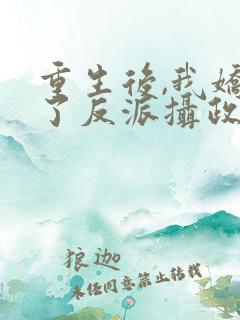 重生後,我嬌
了反派攝政
狼迦
未經同意禁止轉載